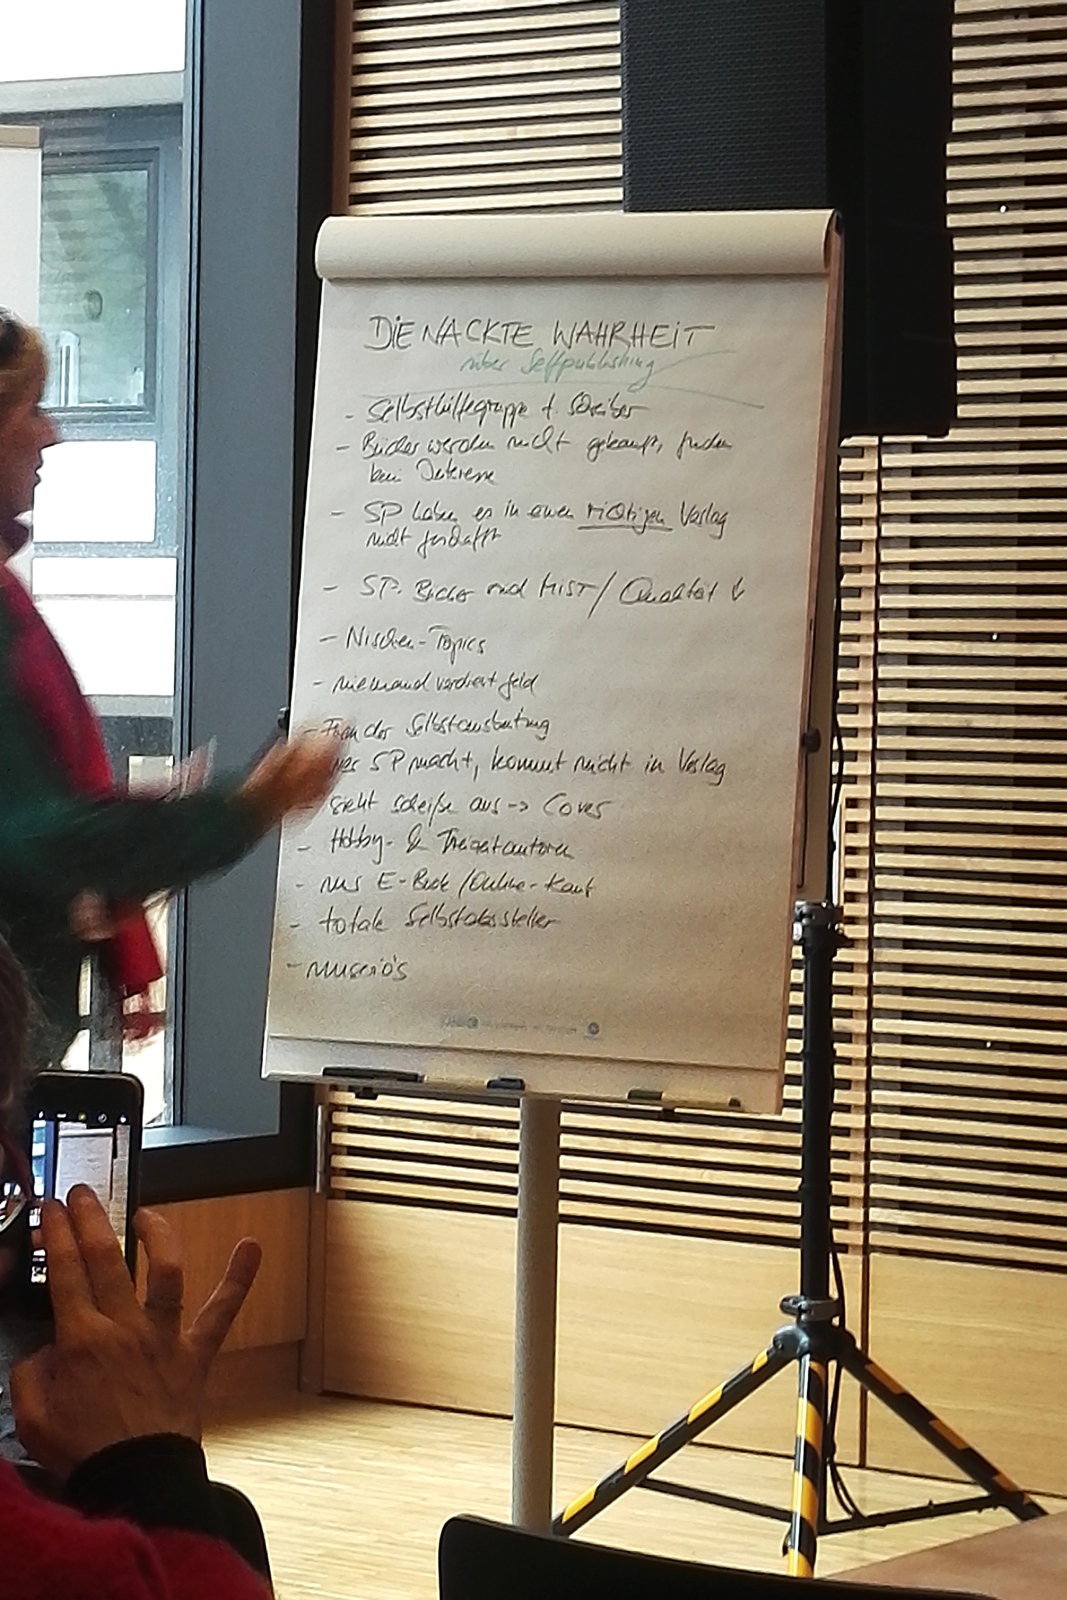 DIE NACKTE WAHRHEIT
über Selfpublishing
- Selbsthilfegruppe f. Schreiber
- Bücher werden nicht gekauft, finden
kein Interesse
- SP haben es in einen richtigen Verlag
nicht geschafft
- SP. Bücher sind MIST / Qualität ↓
- Nischen-Topics
- niemand verdient Geld
- Form der Selbstausbeutung
wer SP macht, kommt nicht in Verlag
- sieht scheiße aus -> Cover
- Hobby- & Freizeitautoren
- nur E-Book / Online-Kauf
- totale Selbstdarsteller